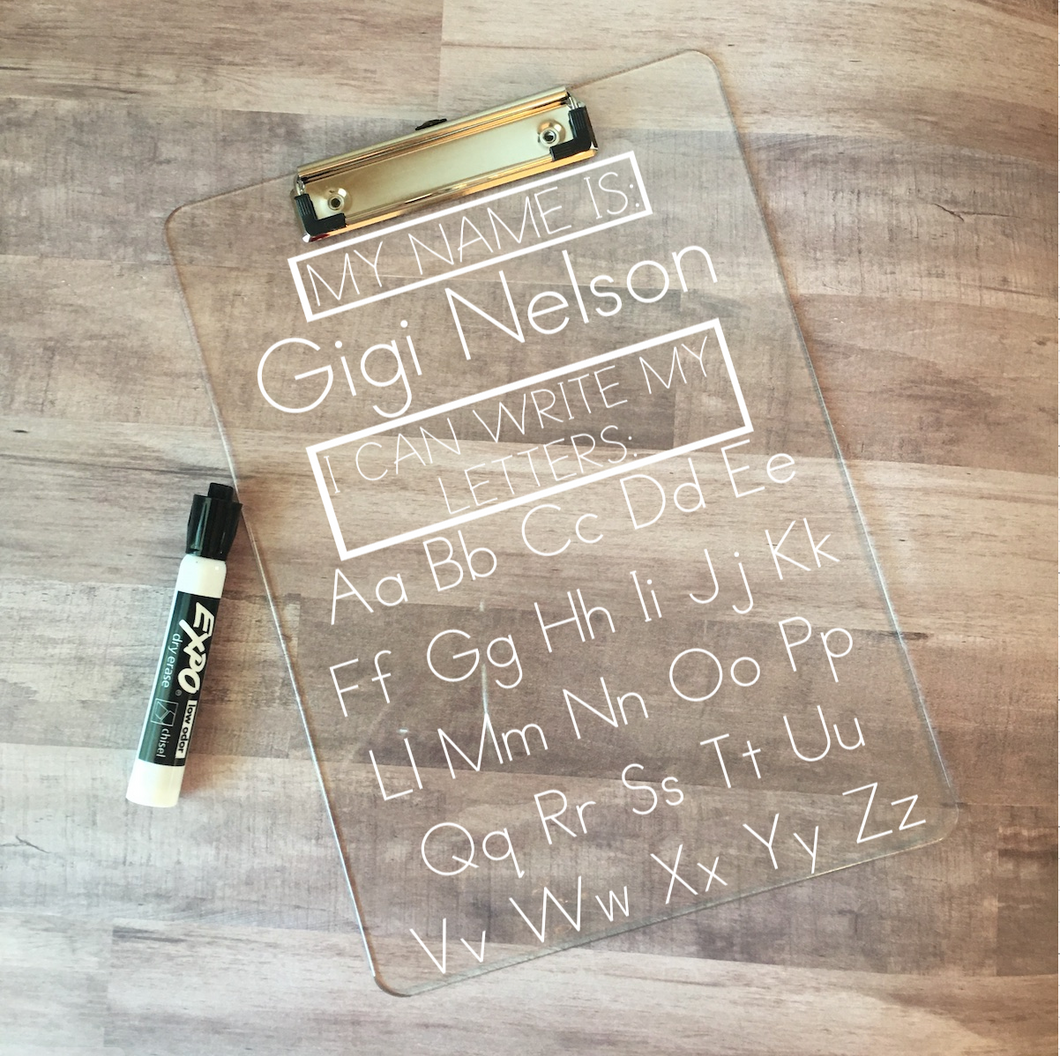 MY NAME IS:
Gigi Nelson
I CAN WRITE MY
LETTERS:
Aa Bb Cc Dd Ee
Ff Gg Hh Ii Jj Kk
Ll Mm Nn Oo Pp
Qq Rr Ss Tt Uu
Vv Ww Xx Yy Zz
EXPO®
dry erase
low odor
chisel